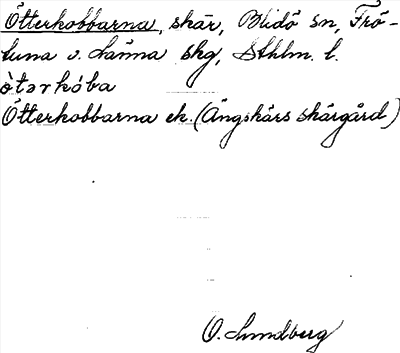 Ötterkobbarna, skär, Blidö sn, Frö-
tuna o. Länna skg, Sthlm. l.
ò̀tərkóba
Ötterkobbarna ek. (Ängskärs skärgård)
O. Lundberg